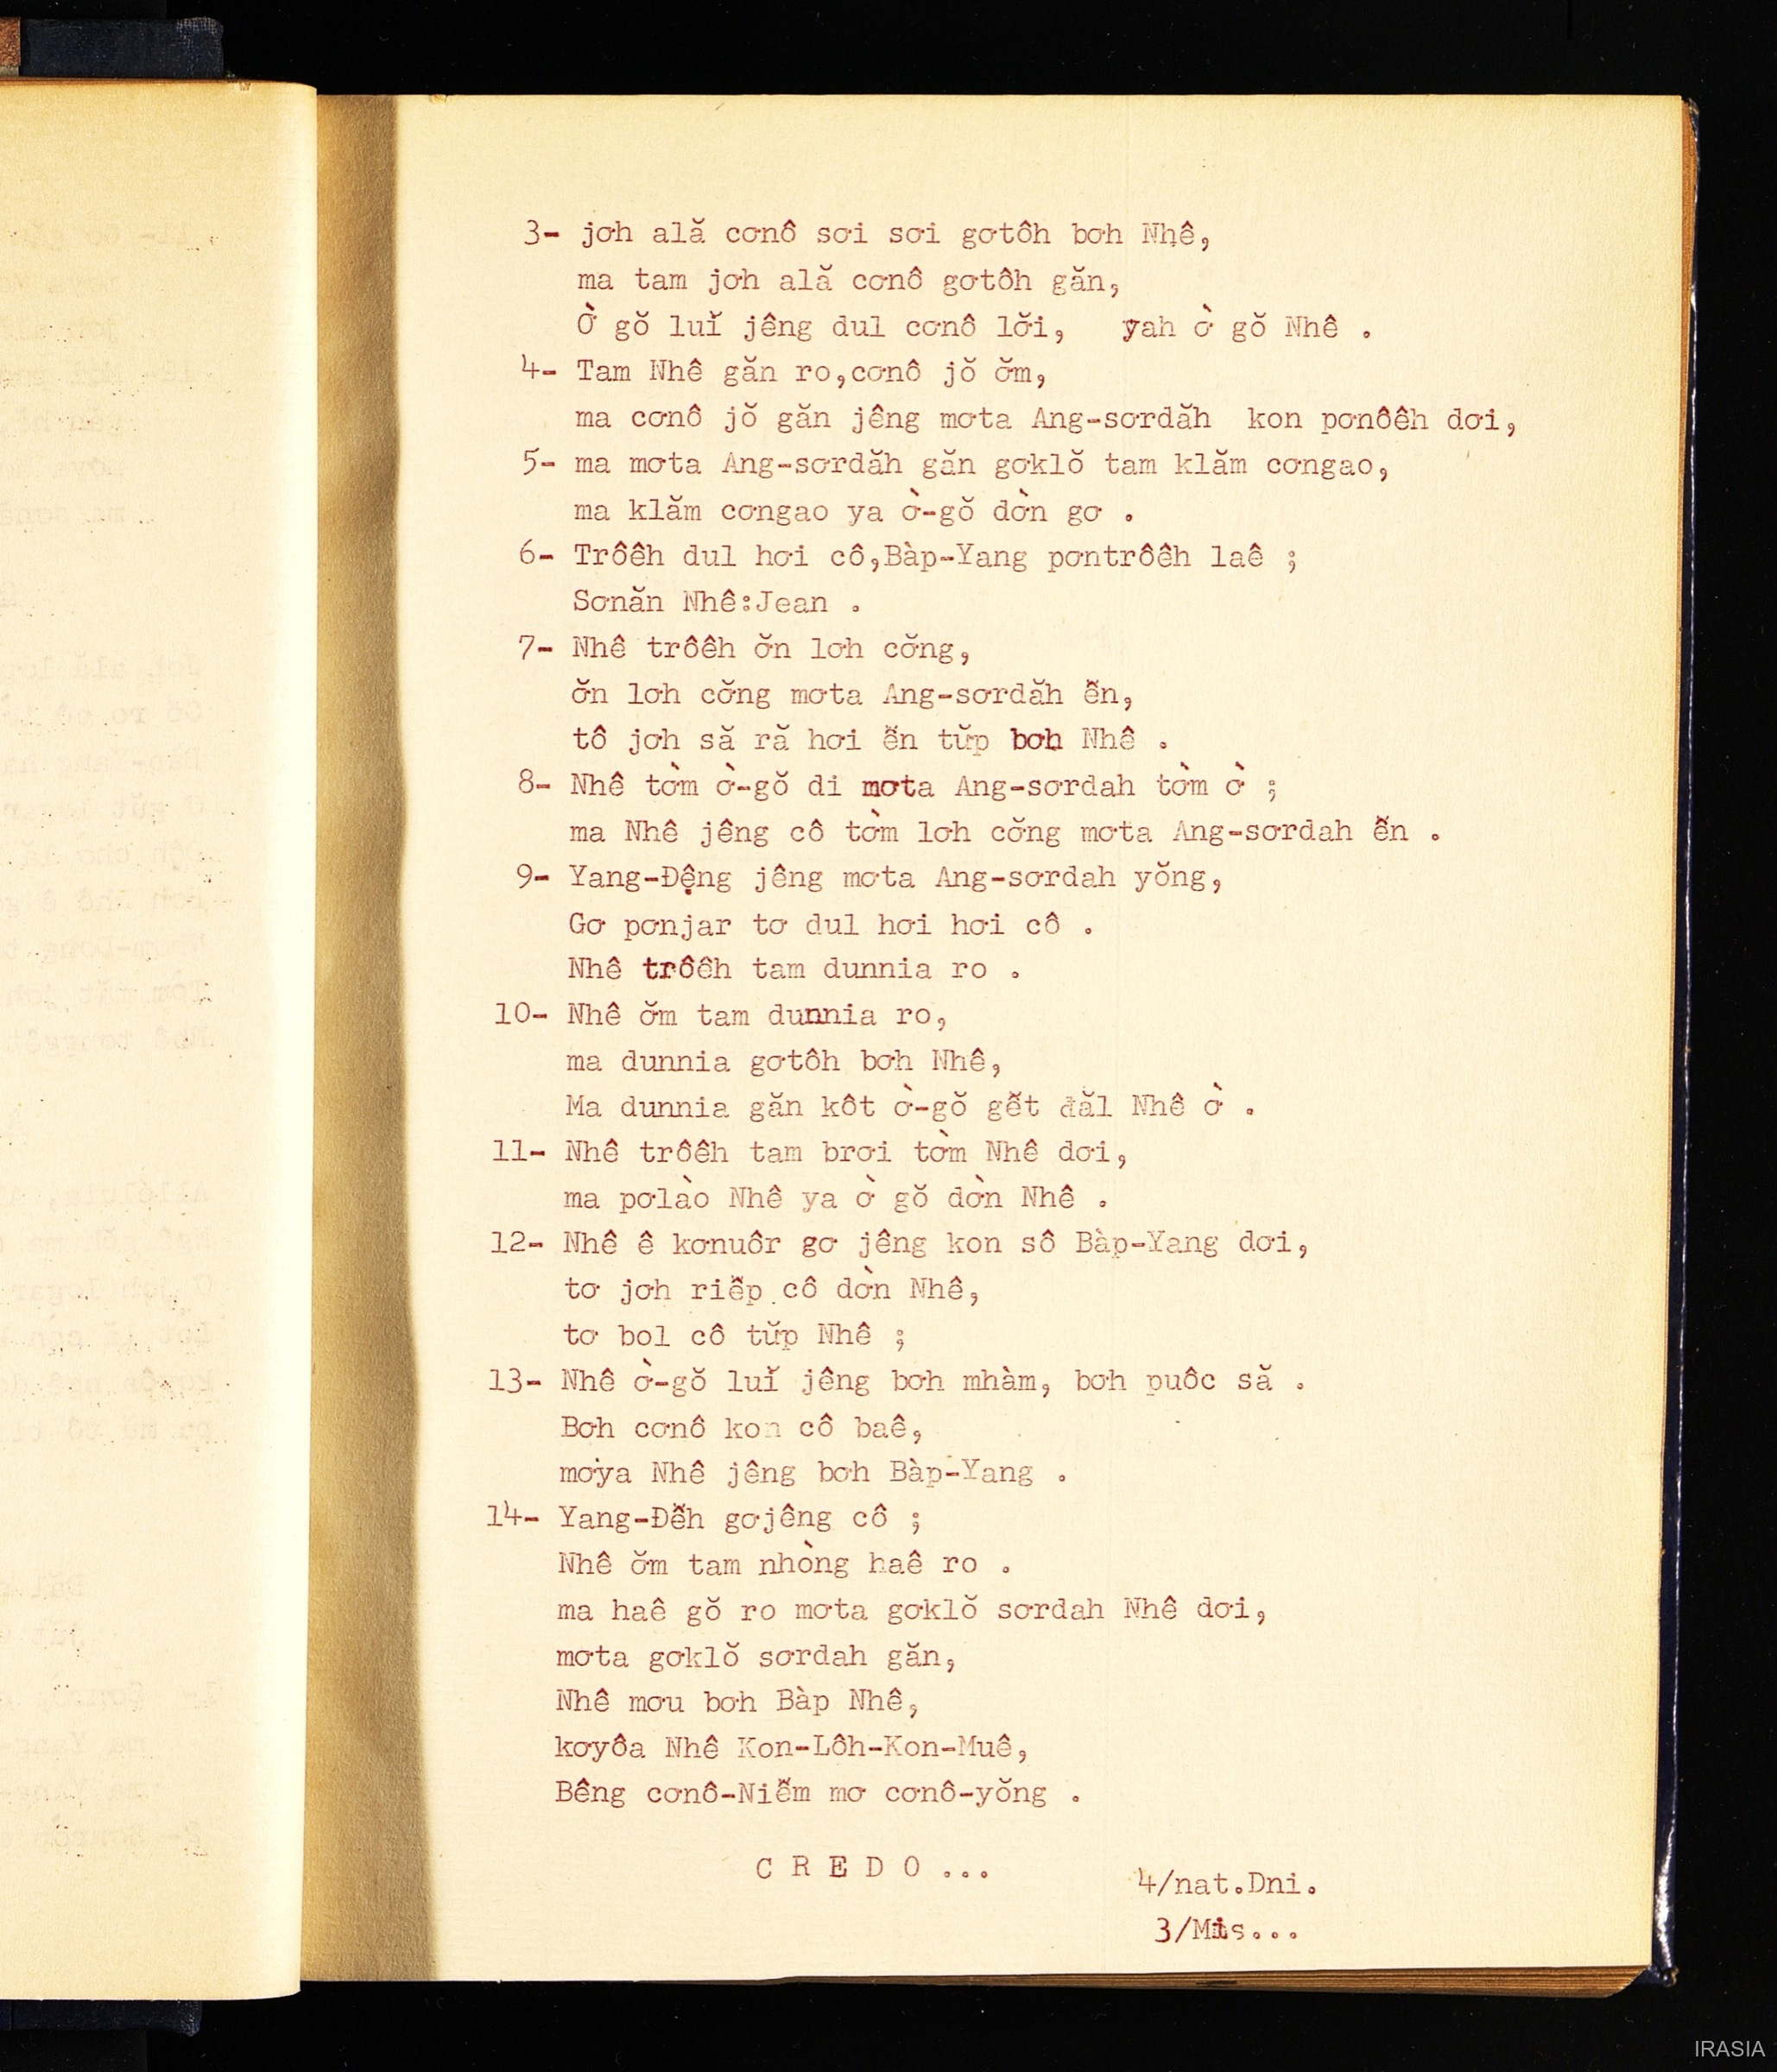 3- jơh ală cơnô sơi sơi gơtôh bơh Nhê,
ma tam jơh ală cơnô gơtôh găn,
Ờ gŏ luĭ jêng dul cơnô lơ̆i, yah ờ gŏ Nhê .
4- Tam Nhê găn ro,cơnô jŏ ơ̆m,
ma cơnô jŏ găn jêng mơta Ang-sơrdăh kon pơnôêh dơi,
5- ma mơta Ang-sơrdăh găn gơklŏ tam klăm cơngao,
ma klăm cơngao ya ờ-gŏ dờn gơ .
6- Trôêh dul hơi cô,Bàp-Yang pơntrôêh laê ;
Sơnăn Nhê:Jean .
7- Nhê trôêh ơ̆n lơh cơ̆ng,
ơ̆n lơh cơ̆ng mơta Ang-sơrdăh ê̆n,
tô jơh să ră hơi ê̆n tŭp bơh Nhê .
8- Nhê tờm ờ-gŏ di mơta Ang-sơrdah tờm ờ ;
ma Nhê jêng cô tờm lơh cơ̆ng mơta Ang-sơrdah ê̆n .
9- Yang-Đệng jêng mơta Ang-sơrdah yŏng,
Gơ pơnjar tơ dul hơi hơi cô .
Nhê trôêh tam dunnia ro .
10- Nhê ơ̆m tam dunnia ro,
ma dunnia gơtôh bơh Nhê,
Ma dunnia găn kôt ờ-gŏ gê̆t đăl Nhê ờ .
11- Nhê trôêh tam brơi tờm Nhê dơi,
ma pơlào Nhê ya ờ gŏ dờn Nhê .
12- Nhê ê kơnuôr gơ jêng kon sô Bàp-Yang dơi,
tơ jơh riê̆p cô dờn Nhê,
tơ bol cô tŭp Nhê ;
13- Nhê ờ-gŏ luĭ jêng bơh mhàm, bơh puôc să .
Bơh cơnô kon cô baê,
mơya Nhê jêng bơh Bàp-Yang .
14- Yang-Đê̆h gơjêng cô ;
Nhê ơ̆m tam nhòng haê ro .
ma haê gŏ ro mơta gơklŏ sơrdah Nhê dơi,
mơta gơklŏ sơrdah găn,
Nhê mơu bơh Bàp Nhê,
kơyôa Nhê Kon-Lôh-Kon-Muê,
Bêng cơnô-Niê̆m mơ cơnô-yŏng .
C R E D O ...
4/nat.Dni.
3/Mis...
IRASIA